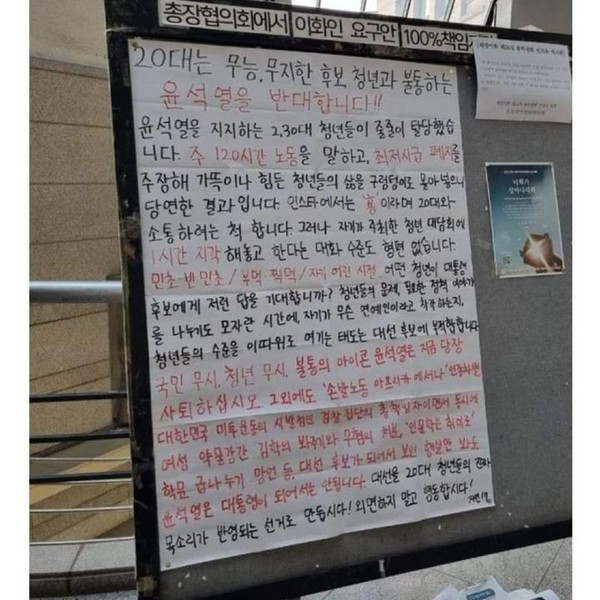 총장협의회에서 이화인 요구안 100%책임
20대는 무능, 무지한 후보 청년과 불통하는
윤석열을 반대합니다!!
윤석열을 지지하는 2,30대 청년들이 줄줄이 탈당했습
니다. 주 120시간 노동을 말하고, 최저시급 폐지를
주장해 가뜩이나 힘든 청년들의 삶을 구렁텅이로 몰아 넣으니
당연한 결과입니다. 인스타에서는 이라며 20대와
소통하려는 척 합니다. 그러나 자기가 주최한 청년 대담회에
1시간 지각 해놓고 한다는 대화 수준도 형편 없습니다.
민초·반민초 / 부먹·찍먹 / 자기 어린 시절 어떤 청년이 대통령
후보에게 저런 답을 기대합니까? 청년들의 문제, 필요한 정책 이야기
를 나누기도 모자란 시간에, 자기가 무슨 연예인이라고 착각하는지,
청년들의 수준을 이따위로 여기는 태도는 대선 후보에 부적합합니다
국민 무시, 청년 무시, 불통의 아이콘 윤석열은 지금 당장
사퇴하십시오. 그외에도 '손발노동 아프리카에서나'
대한민국 미투운동의 시발점인 검찰 집단의 총책임자이면서 동시에
여성 약물강간 김학의 봐주기와 무혐의 처분, '인문학은 취미로'
학문 급나누기 망언 등, 대선 후보가 되어서 보인 행보만 봐도
윤석열은 대통령이 되어서는 안됩니다. 대선을 20대 청년들의 진짜
목소리가 반영되는 선거로 만듭시다! 외면하지 말고 행동합시다!
너희가
살아나리라